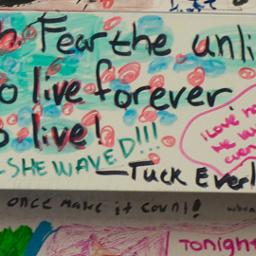 h. Fear the unli
o live forever
o live!
SHE WAVED!!!
—Tuck Everl
I Love
once make it count!
Tonight